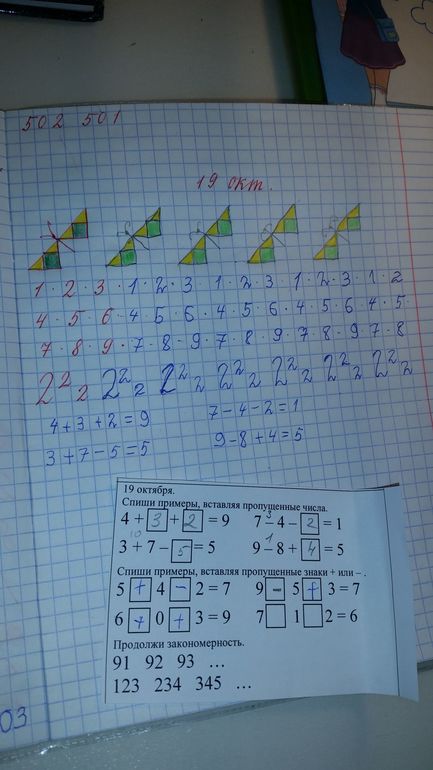 502 501
19 окт.
1 · 2 · 3 · 1 · 2 · 3 · 1 · 2 · 3 · 1 · 2 · 3 · 1 · 2
4 · 5 · 6 · 4 · 5 · 6 · 4 · 5 · 6 · 4 · 5 · 6 · 4 · 5
7 · 8 · 9 · 7 · 8 · 9 · 7 · 8 · 9 · 7 · 8 · 9 · 7 · 8
2 2 2 2 2 2 2 2 2 2 2 2 2 2 2 2 2 2 2 2 2
4+3+2=9 7-4-2=1
3+7-5=5 9-8+4=5
19 октября.
Спиши примеры, вставляя пропущенные числа.
4 + 3 + 2 = 9 7 – 4 – 2 = 1
3
3 + 7 – 5 = 5 9 – 8 + 4 = 5
10 1
Спиши примеры, вставляя пропущенные знаки + или – .
5 + 4 – 2 = 7 9 – 5 + 3 = 7
6 + 0 + 3 = 9 7 1 2 = 6
Продолжи закономерность.
91 92 93 …
123 234 345 …
03